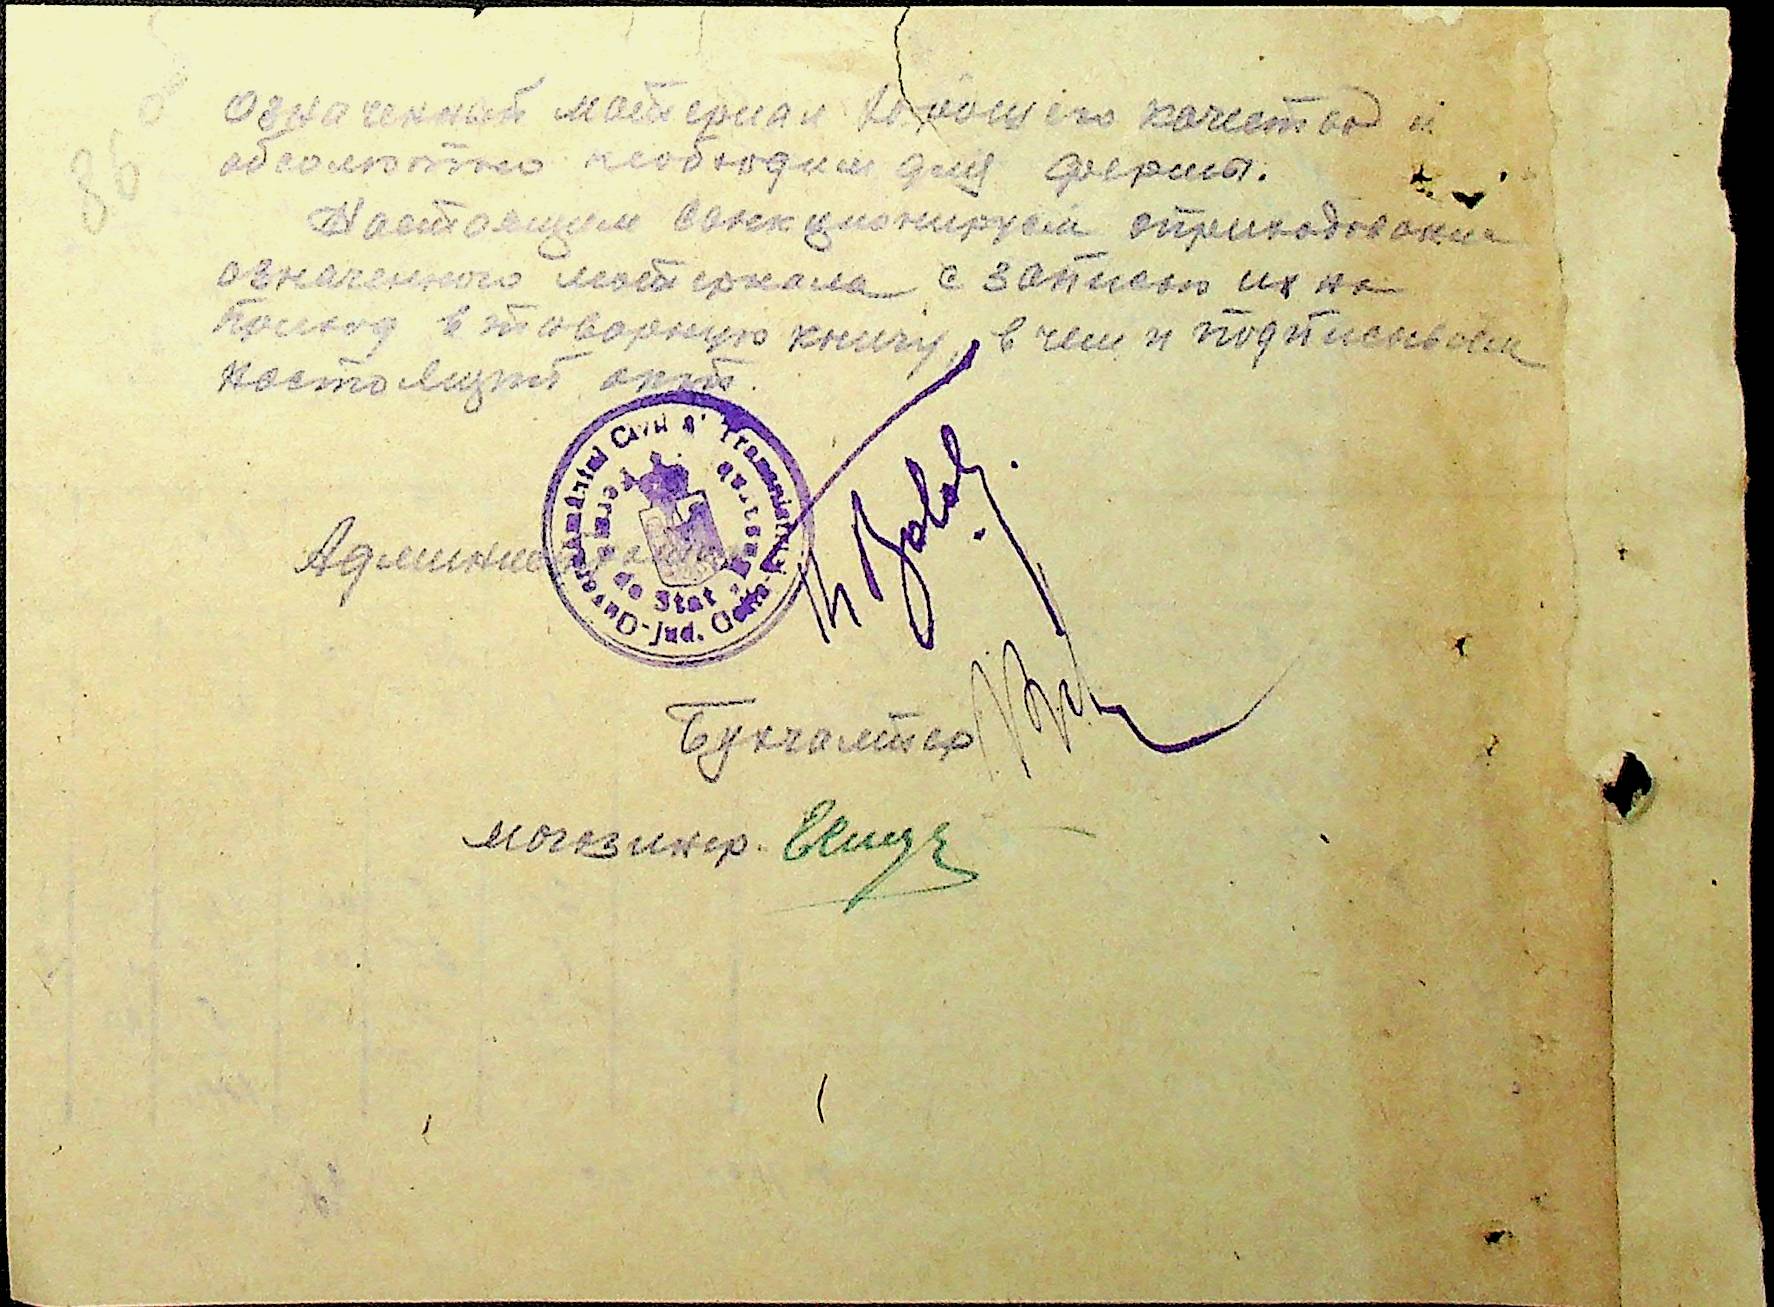 86
Означенный материал хорошего качества и
абсолютно необходим для фермы.
Настоящим санкционируем оприходование
означенного материала с записью их на
приход в товарную книгу, в чем и подписываем
настоящий акт.
Guvernământul Civil al Transnistriei
Ferma
de Stat
Jud.
Администратор
Бухгалтер
магазинер.